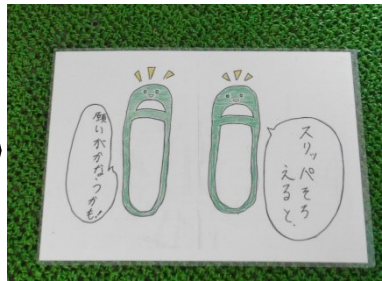 スリッパそろ
えると、
願いがかなうかも!!